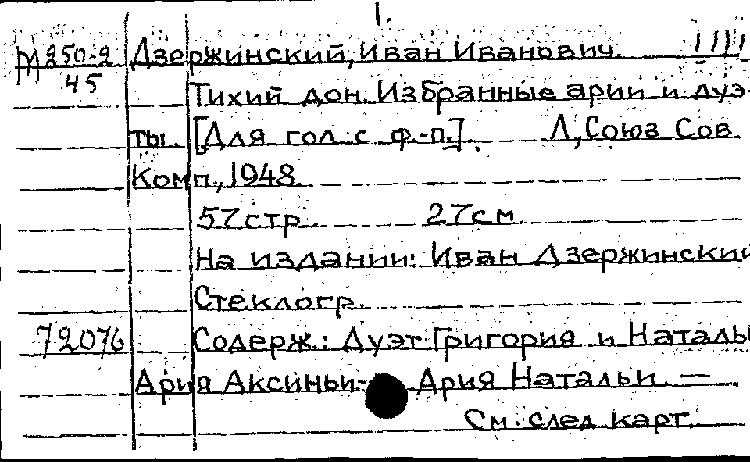 1.
М 250-2 Дзержинский, Иван Иванович. 1111
45
Тихий дон. Избранные арии и дуэ
ты. [Для гол. с ф.-п.]. Л, Союз Сов.
Комп., 1948
57 стр. 27 см.
На издании: Иван Дзержинский
Стеклогр.
72076 Содерж.: Дуэт Григория и Наталь
Ария Аксиньи- Ария Натальи. —
См. след карт.